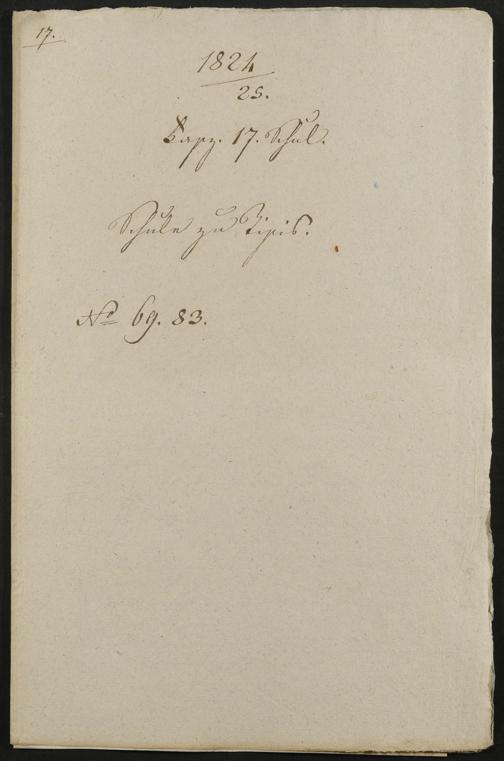 17.
1824
25.
17. Schul.
Schule zu
No 69. 83.